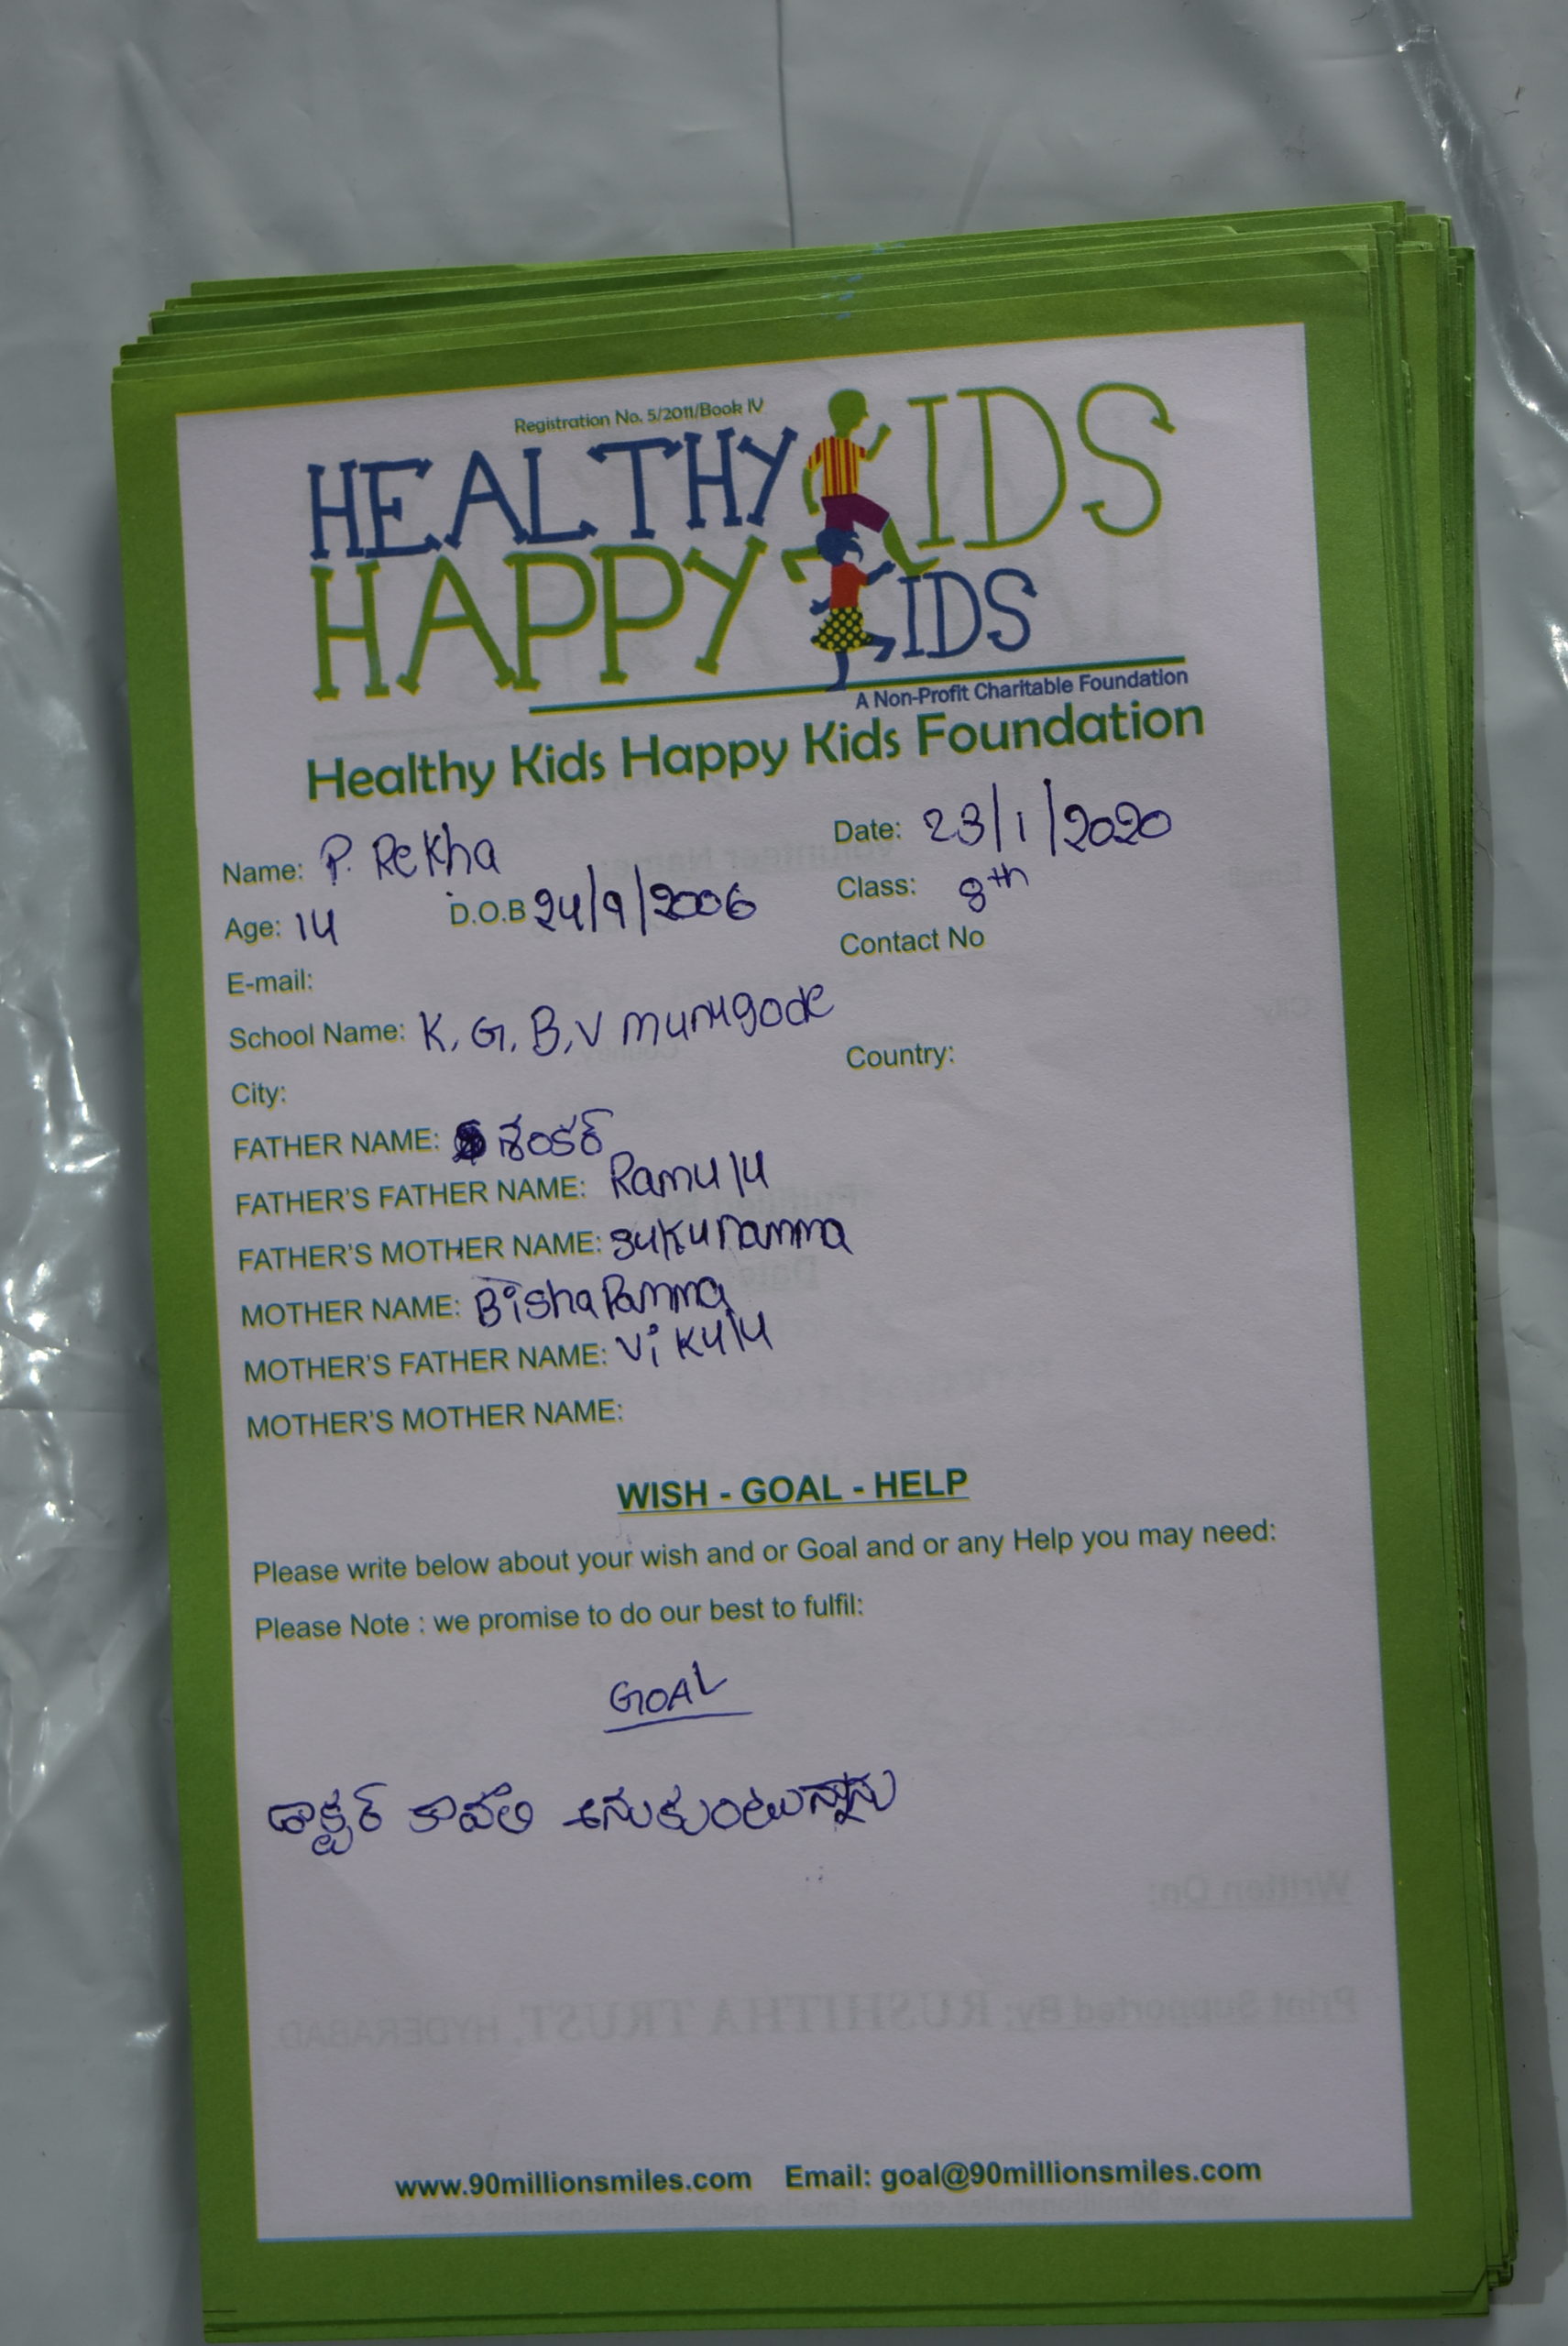 Registration No. 5/2011/Book IV
HEALTHY KIDS
HAPPY KIDS
A Non-Profit Charitable Foundation
Healthy Kids Happy Kids Foundation
Name: P. Rekha Date: 23/1/2020
Age: 14 D.O.B 24/9/2006 Class: 8th
E-mail: Contact No
School Name: K. G. B. V munugode
City: Country:
FATHER NAME: శంకర్
FATHER'S FATHER NAME: Ramulu
FATHER'S MOTHER NAME: sukunamma
MOTHER NAME: BishaPamma
MOTHER'S FATHER NAME: Vikulu
MOTHER'S MOTHER NAME:
WISH - GOAL - HELP
Please write below about your wish and or Goal and or any Help you may need:
Please Note : we promise to do our best to fulfil:
GOAL
డాక్టర్ కావలి అనుకుంటున్నాను
Written On:
Print Supported By: RUSHITHA TRUST, HYDERABAD
www.90millionsmiles.com Email: goal@90millionsmiles.com